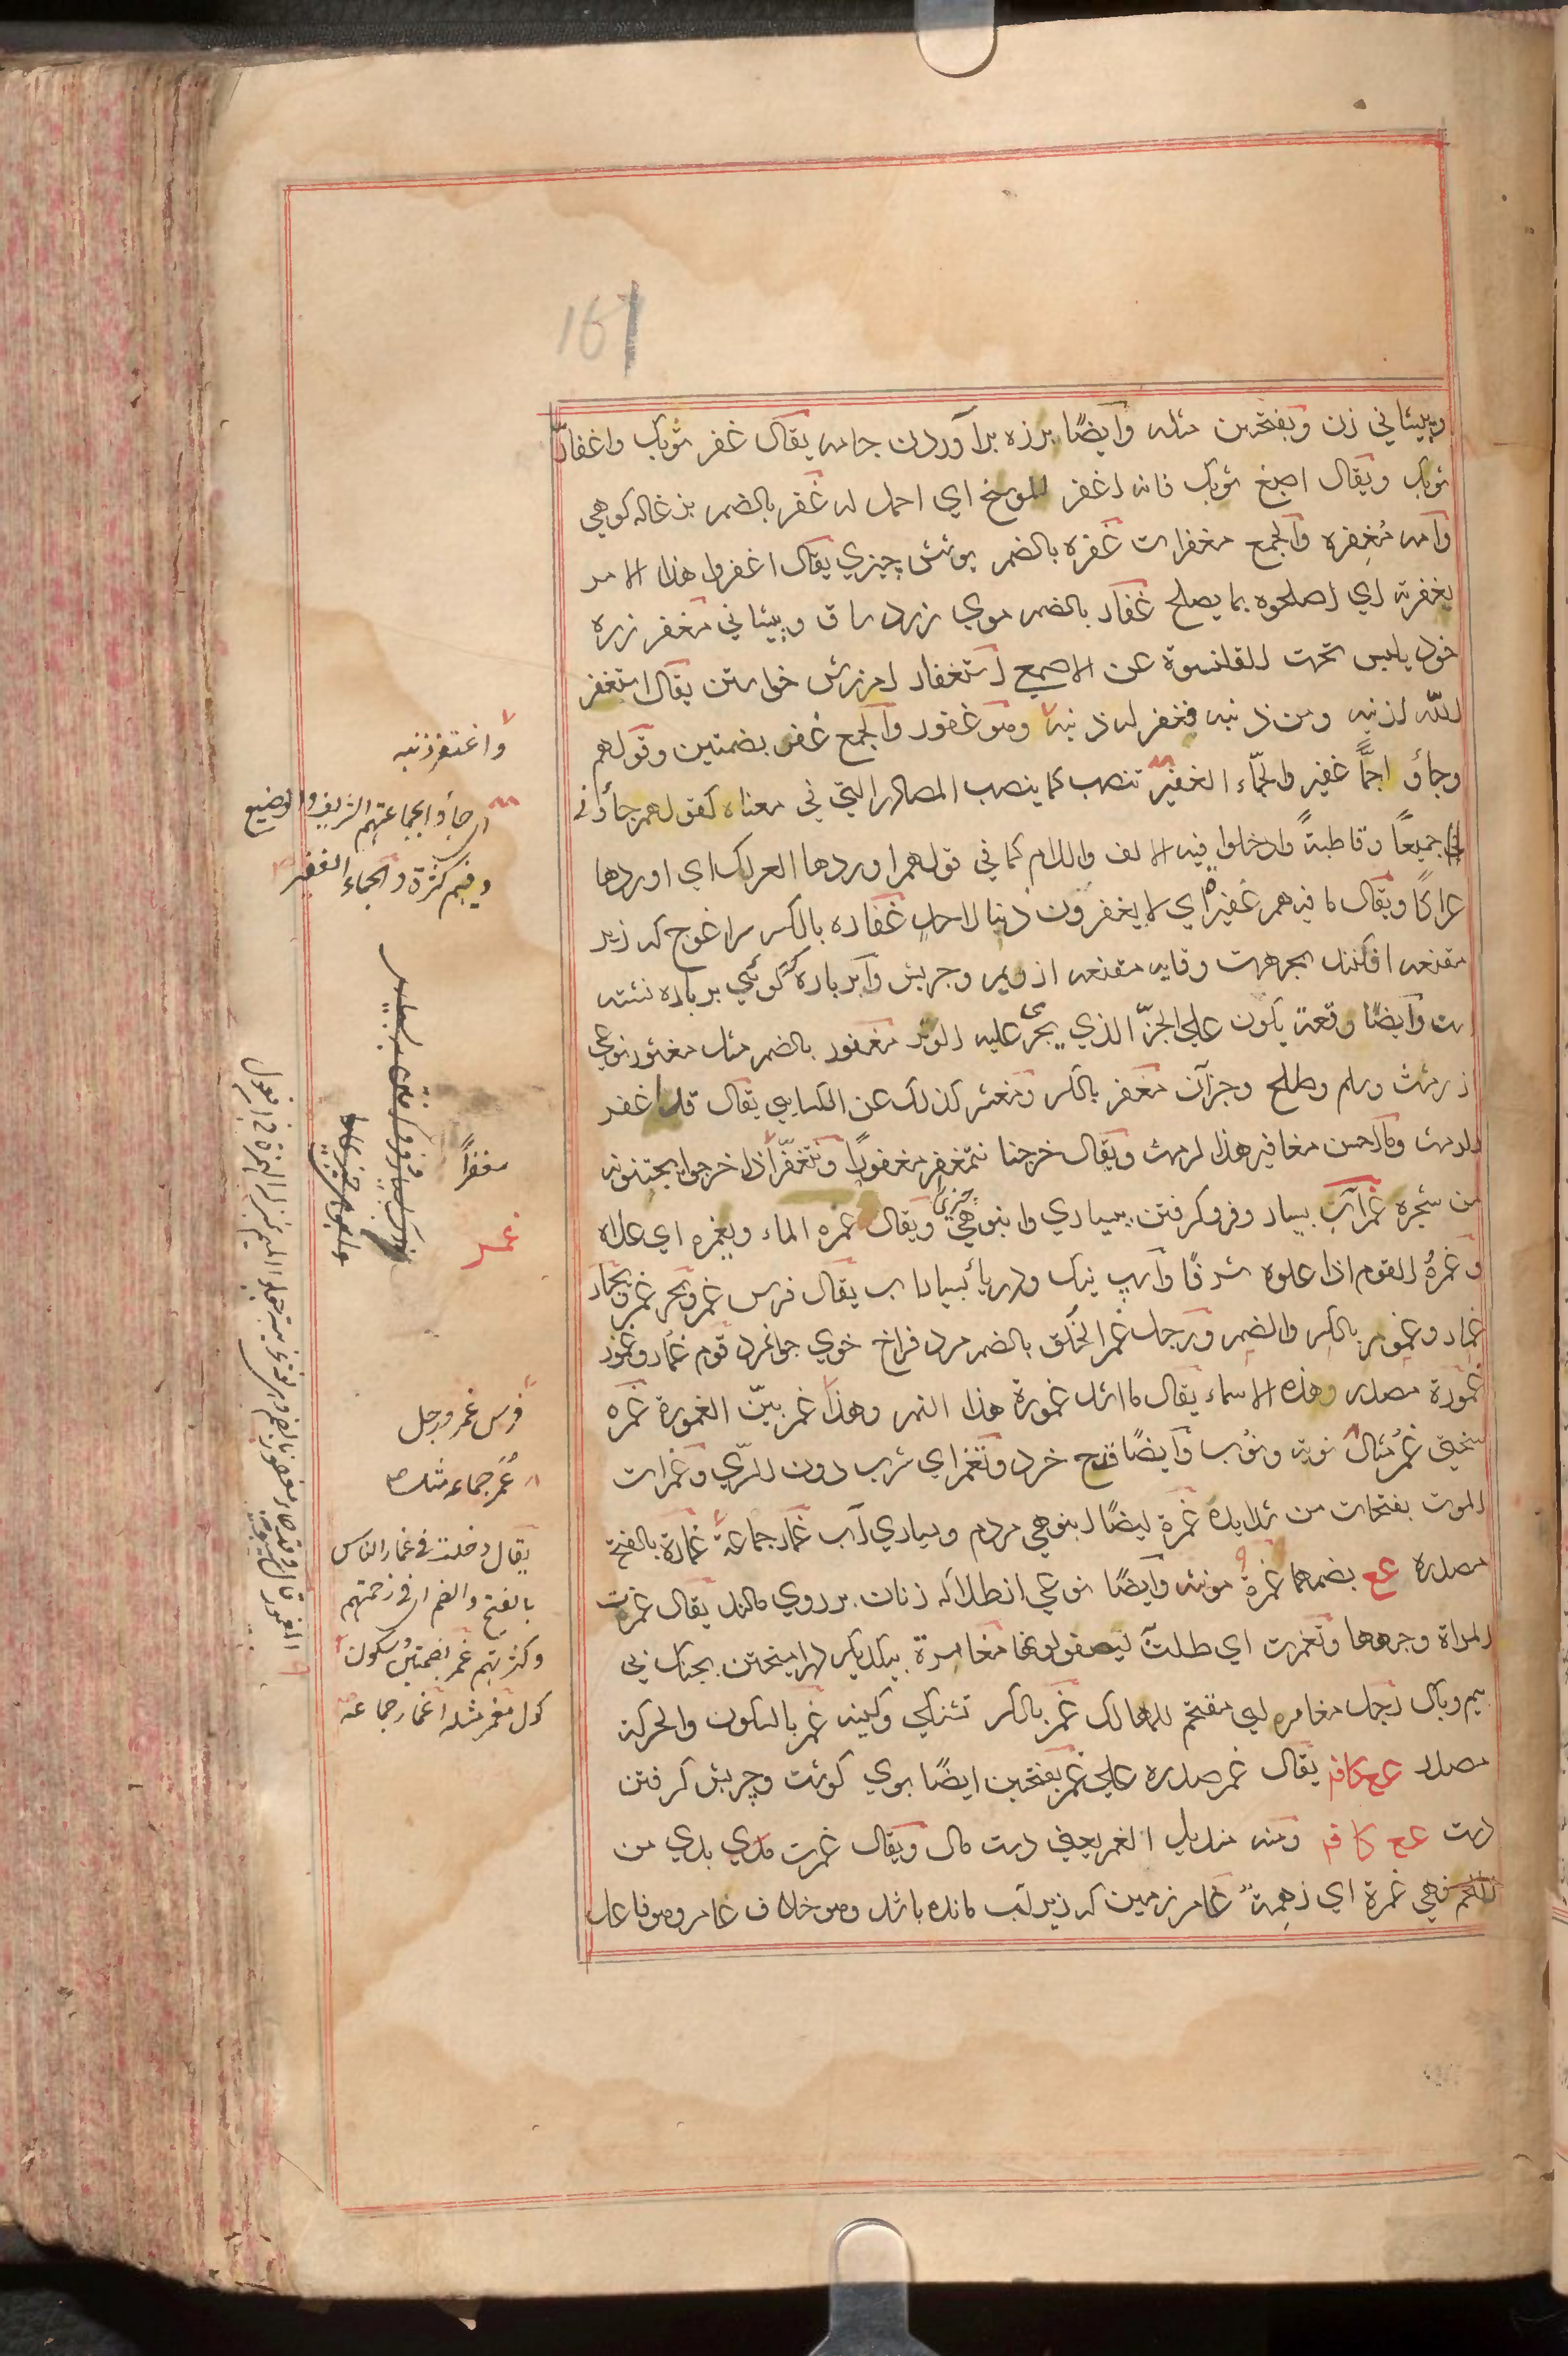 161
وپیشانی زن وبفتحتین مثله وایضًا برزه برآوردن جامه یقال غفر ثوبک واغفارّ
ثوبک ویقال اصبغ ثوبک فانه اغفر للوسخ ای احمل له غفر بالضم بزغاله کوهی
وامه مُغفِره والجمع مغفرات غفره بالضم پوشش چیزی یقال اغفروا هذا الامر
بغفرته ای اصلحوه بما یصلح غفار بالضم موی زرد ساق وپیشانی مغفر زره
خود یلبس تحت القلنسوة عن الاصمعی استغفار امرزش خواستن یقال استغفر
اللّه لذنبه ومن ذنبه فغفر له ذنبه وهو غفور والجمع غفر بضمتین وقولهم
وجاؤا جمًّا غفیر والجمّاء الغفیر تنصب کما ینصب المصادر التی فی معناه کقولهم جاؤنی
جمیعًا وقاطبةً وادخلوا فیه الالف واللام کما فی قولهم اوردها العراک ای اوردها
عراکًا ویقال ما فیهم غفیرة ای لا یغفرون ذنبا لاحدٍ غفاره بالکسر سراغوج که زیر
مقنعه افکنند بجهت وقایه مقنعه از ریم وچربش وابر باره که گوئی بر باره نشسته
ست وایضًا رقعة یکون علی الحزّ الذی یجری علیه الوتر مغفور بالضم مثل مغثور نوعی
از رمث وسلم وطلح وجزآن مغفر بالکسر ومغثر کذلک عن الکسایی یقال قد اغفر
الرمث وما احسن مغافیر هذا الرمث ویقال خرجنا نتمغفر مغفورًا ونتغفّر اذا خرجوا یجتنونه
من شجره غمر آب بسیار وفرو گرفتن بسیاری وانبوهی چیزی ویقال غمره الماء ویغمره ای علاه
وغمرهُ القوم اذا علوه شرفًا واسپ نیک ودریا بسیار اب یقال فرس غمر وبحر غمر وبحار
غمار وغمور بالکسر والضم ورجل غمر الخلق بالضم مرد فراخ خوی جوانمرد قوم غمار وغمور
غمورة مصدر وهذه الاسماء یقال ما اشد غمورة هذا النهر وهذا غمر بیّن الغمورة غمره
سختی غمر مثال نوبة ونوب وایضًا قدح خرد وتغمر ای شرب دون الرّی وغمرات
الموت بفتحات من شدایده غمرة ایضًا انبوهی مردم وبسیاری آب غمار جماعة غمارة بالفتح
مصدره عع بضمهما غمرة مونثه وایضًا نوعی از طلا که زنان بر روی مالند یقال غمرت
المراة وجهها وتغمرت ای طلت لیصفو لونها مغامرة بیکدیگر درامیختن بجنگ بی
بیم وباک رجل مغامر ای مقتحم للمهالک غمر بالکسر تشنگی وکینه غمر بالسکون والحرکة
مصدر عع کاف یقال غمر صدره علی غمر بفتحتین ایضًا بوی گوشت وچربش گرفتن
دست عع کاف ومنه مندیل الغمر یعنی دست مال ویقال غمرت یدی من
اللحم فهی غمرة ای زهمةٌ غامر زمین که زیر آب مانده باشد وهو خلاف عامر وهو فاعل
واغتفر ذنبه
ای جاؤا بجماعتهم الشریف والوضیع
وفیهم کثرة والجماء الغفیر
مغفراً
غمر
فرس غمر ورجل
غُمر جماعه مثله
یقال دخلت فی غمار الناس
بالفتح والضم ای فی زحمتهم
وکثرتهم غمر بضمتین وسکون
کول مغمر مثله اغمار جماعة